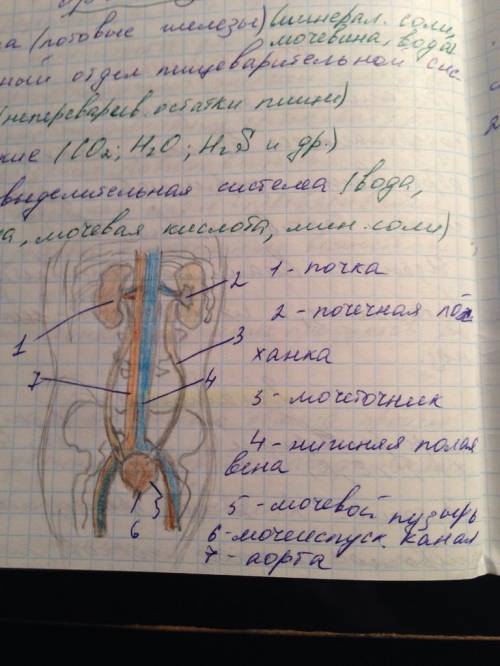 (потовые железы) (минерал. соли,
мочевина, вода
ный отдел пищеварительной сис
(непереварив. остатки пищи)
(CO2; H2O; H2S и др.)
выделительная система (вода,
а, мочевая кислота, мин. соли)
1 - почка
2
2 - почечная лох
3
ханка
1
7
4
3 - мочеточник
4 - нижняя полая
вена
5
5 - мочевой пузырь
6
6 - мочеиспуск. канал
7 - аорта